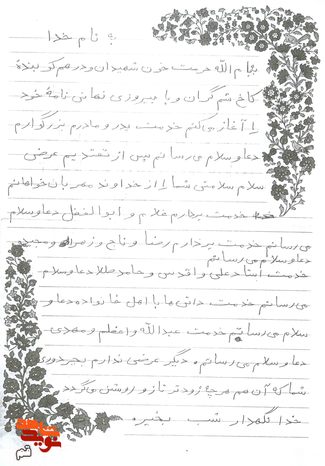 به نام خدا
بنام الله حرمت خون شهیدان و درهم کوبندۀ
کاخ ستم گران و با پیروزی نهائی نامۀ خود
را آغاز می کنم خدمت پدر و مادرم بزرگوارم
دعا و سلام می رسانم پس از تقدیم عرض
سلام سلامتی شما را از خداوند مهربان خواهانم
خدمت برادرم غلام و ابوالفضل دعا و سلام
می رسانم خدمت برادرم رضا و زهرا و مجید
دعا و سلام می رسانم
خدمت علی و اقدس و حامد دعا و سلام
می رسانم خدمت دائی ها با اهل خانواده دعا و
سلام می رسانم خدمت عبدالله و اعظم و مهدی
دعا و سلام می رسانم، دیگر عرضی ندارم بجز دوری
شما که آن هم هر چه زودتر تازه و روشن می گردد
خدا نگهدار شب بخیر
نوید